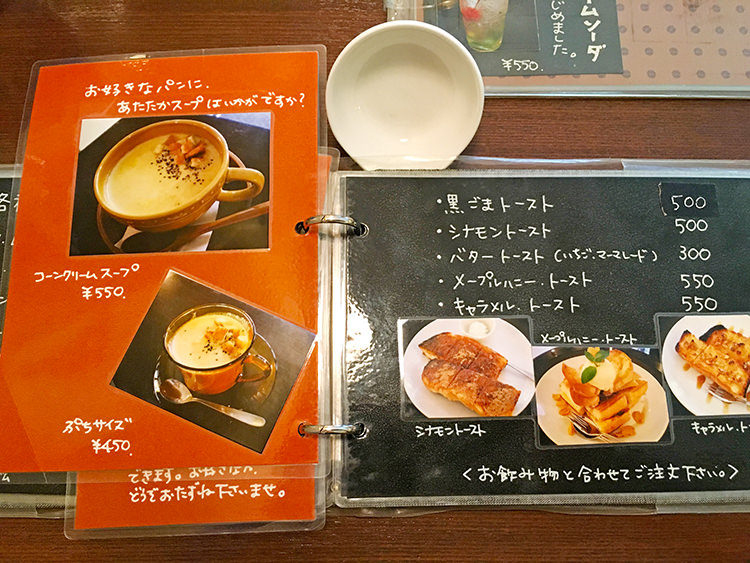 お好きなパンに、
あたたかスープはいかがですか?
コーンクリームスープ
¥550.
ぷちサイズ
¥450.
できます。お好きなパ
どうぞおたずね下さいませ。
ムソーダ
じめました。
¥550.
・黒ごまトースト 500
・シナモントースト 500
・バタートースト(いちご・マーマレード) 300
・メープルハニー・トースト 550
・キャラメル・トースト 550
メープルハニー・トースト
シナモントースト
キャラメル・ト
<お飲み物と合わせてご注文下さい。>